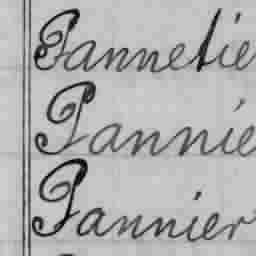 Pannetie
Pannie
Pannier